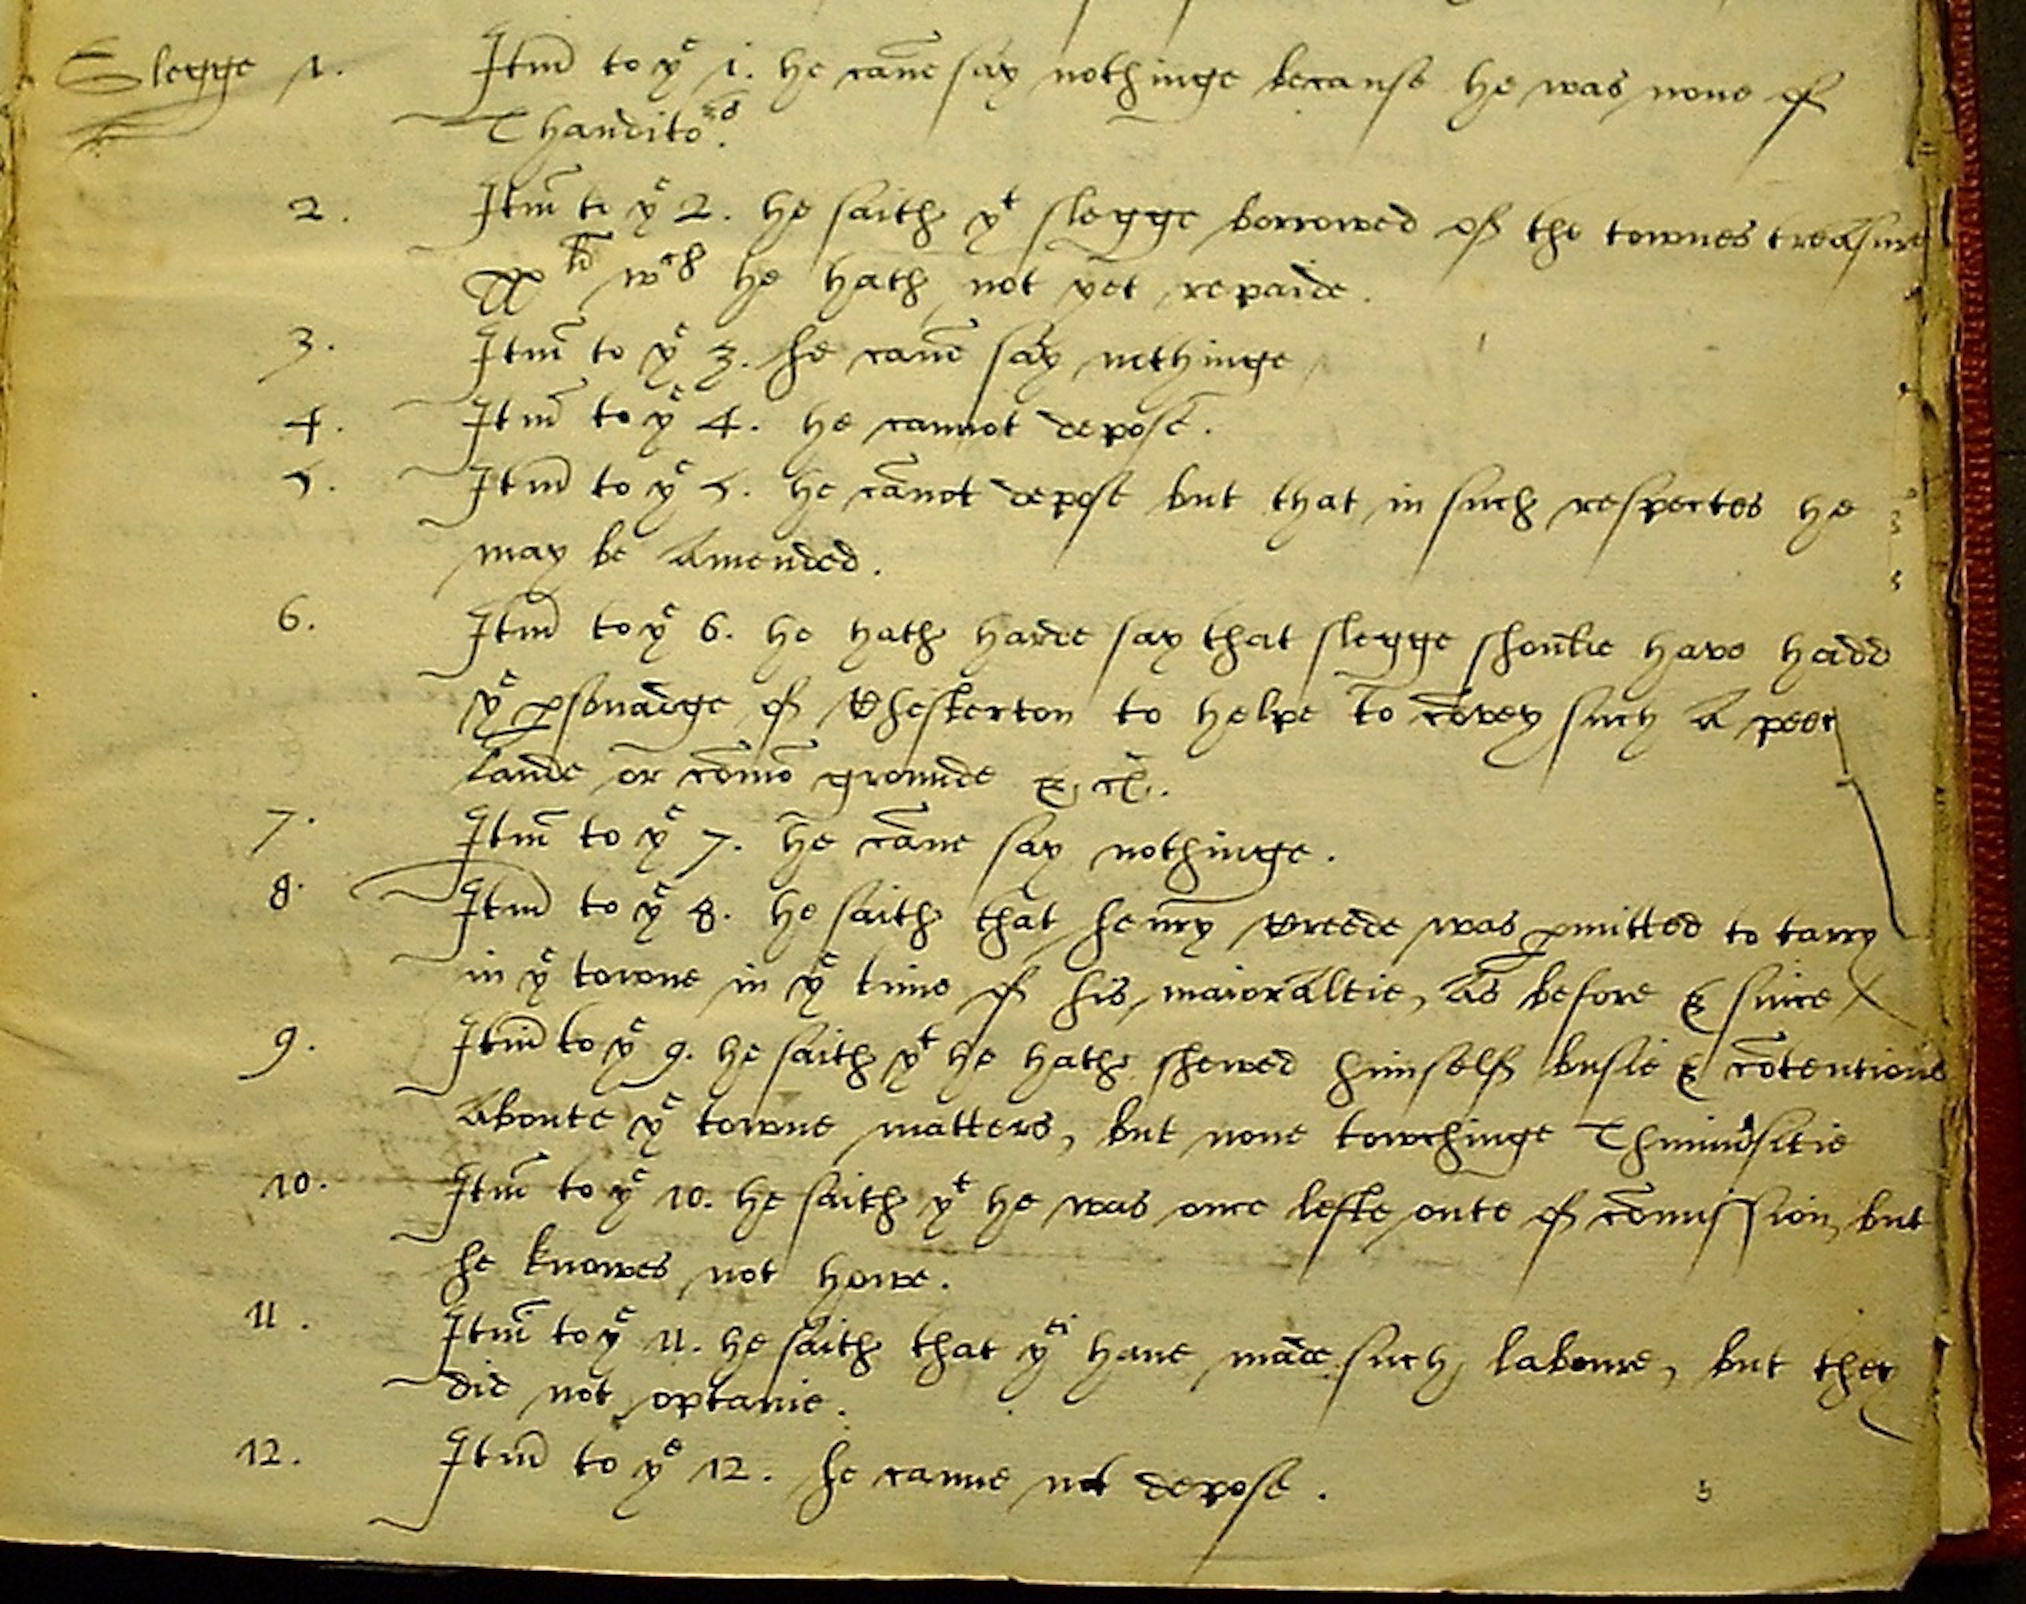 Slegge 1. Itm̄ to yͤ 1. he cañe say nothinge because he was none of
Thauditoʳˢ.
2. Itm̄ to yͤ 2. he saith yᵗ slegge borrowed of the townes treasure
xxˡⁱ wᶜʰ he hath not yet repaide.
3. Itm̄ to yͤ 3. he cañe say nothinge
4. Itm̄ to yͤ 4. he cannot depose.
5. Itm̄ to yͤ 5. he cānot depose but that in such respectes he
may be Amended.
6. Itm̄ to yͤ 6. he hath harde say that slegge shoulde have hadd
yͤ ꝑsonadge of Chesterton to helpe to cōvey such A peec
lande or com̄o grounde &c.
7. Itm̄ to yͤ 7. he cāne say nothinge.
8. Itm̄ to yͤ 8. he saith that henry Breede was ꝑmitted to tarry
in yͤ towne in yͤ time of his maioraltie, As before & since
9. Itm̄ to yͤ 9. he saith yᵗ he hath shewed himself busie & cōtentious
Aboute yͤ towne matters, but none towchinge Thuniuʳsitie
10. Itm̄ to yͤ 10. he saith yᵗ he was once lefte oute of com̄ission, but
he knowes not howe.
11. Itm̄ to yͤ 11. he saith that yᵉⁱ haue made such laboure, but they
did not optaine.
12. Itm̄ to yͤ 12. he canne not depose.